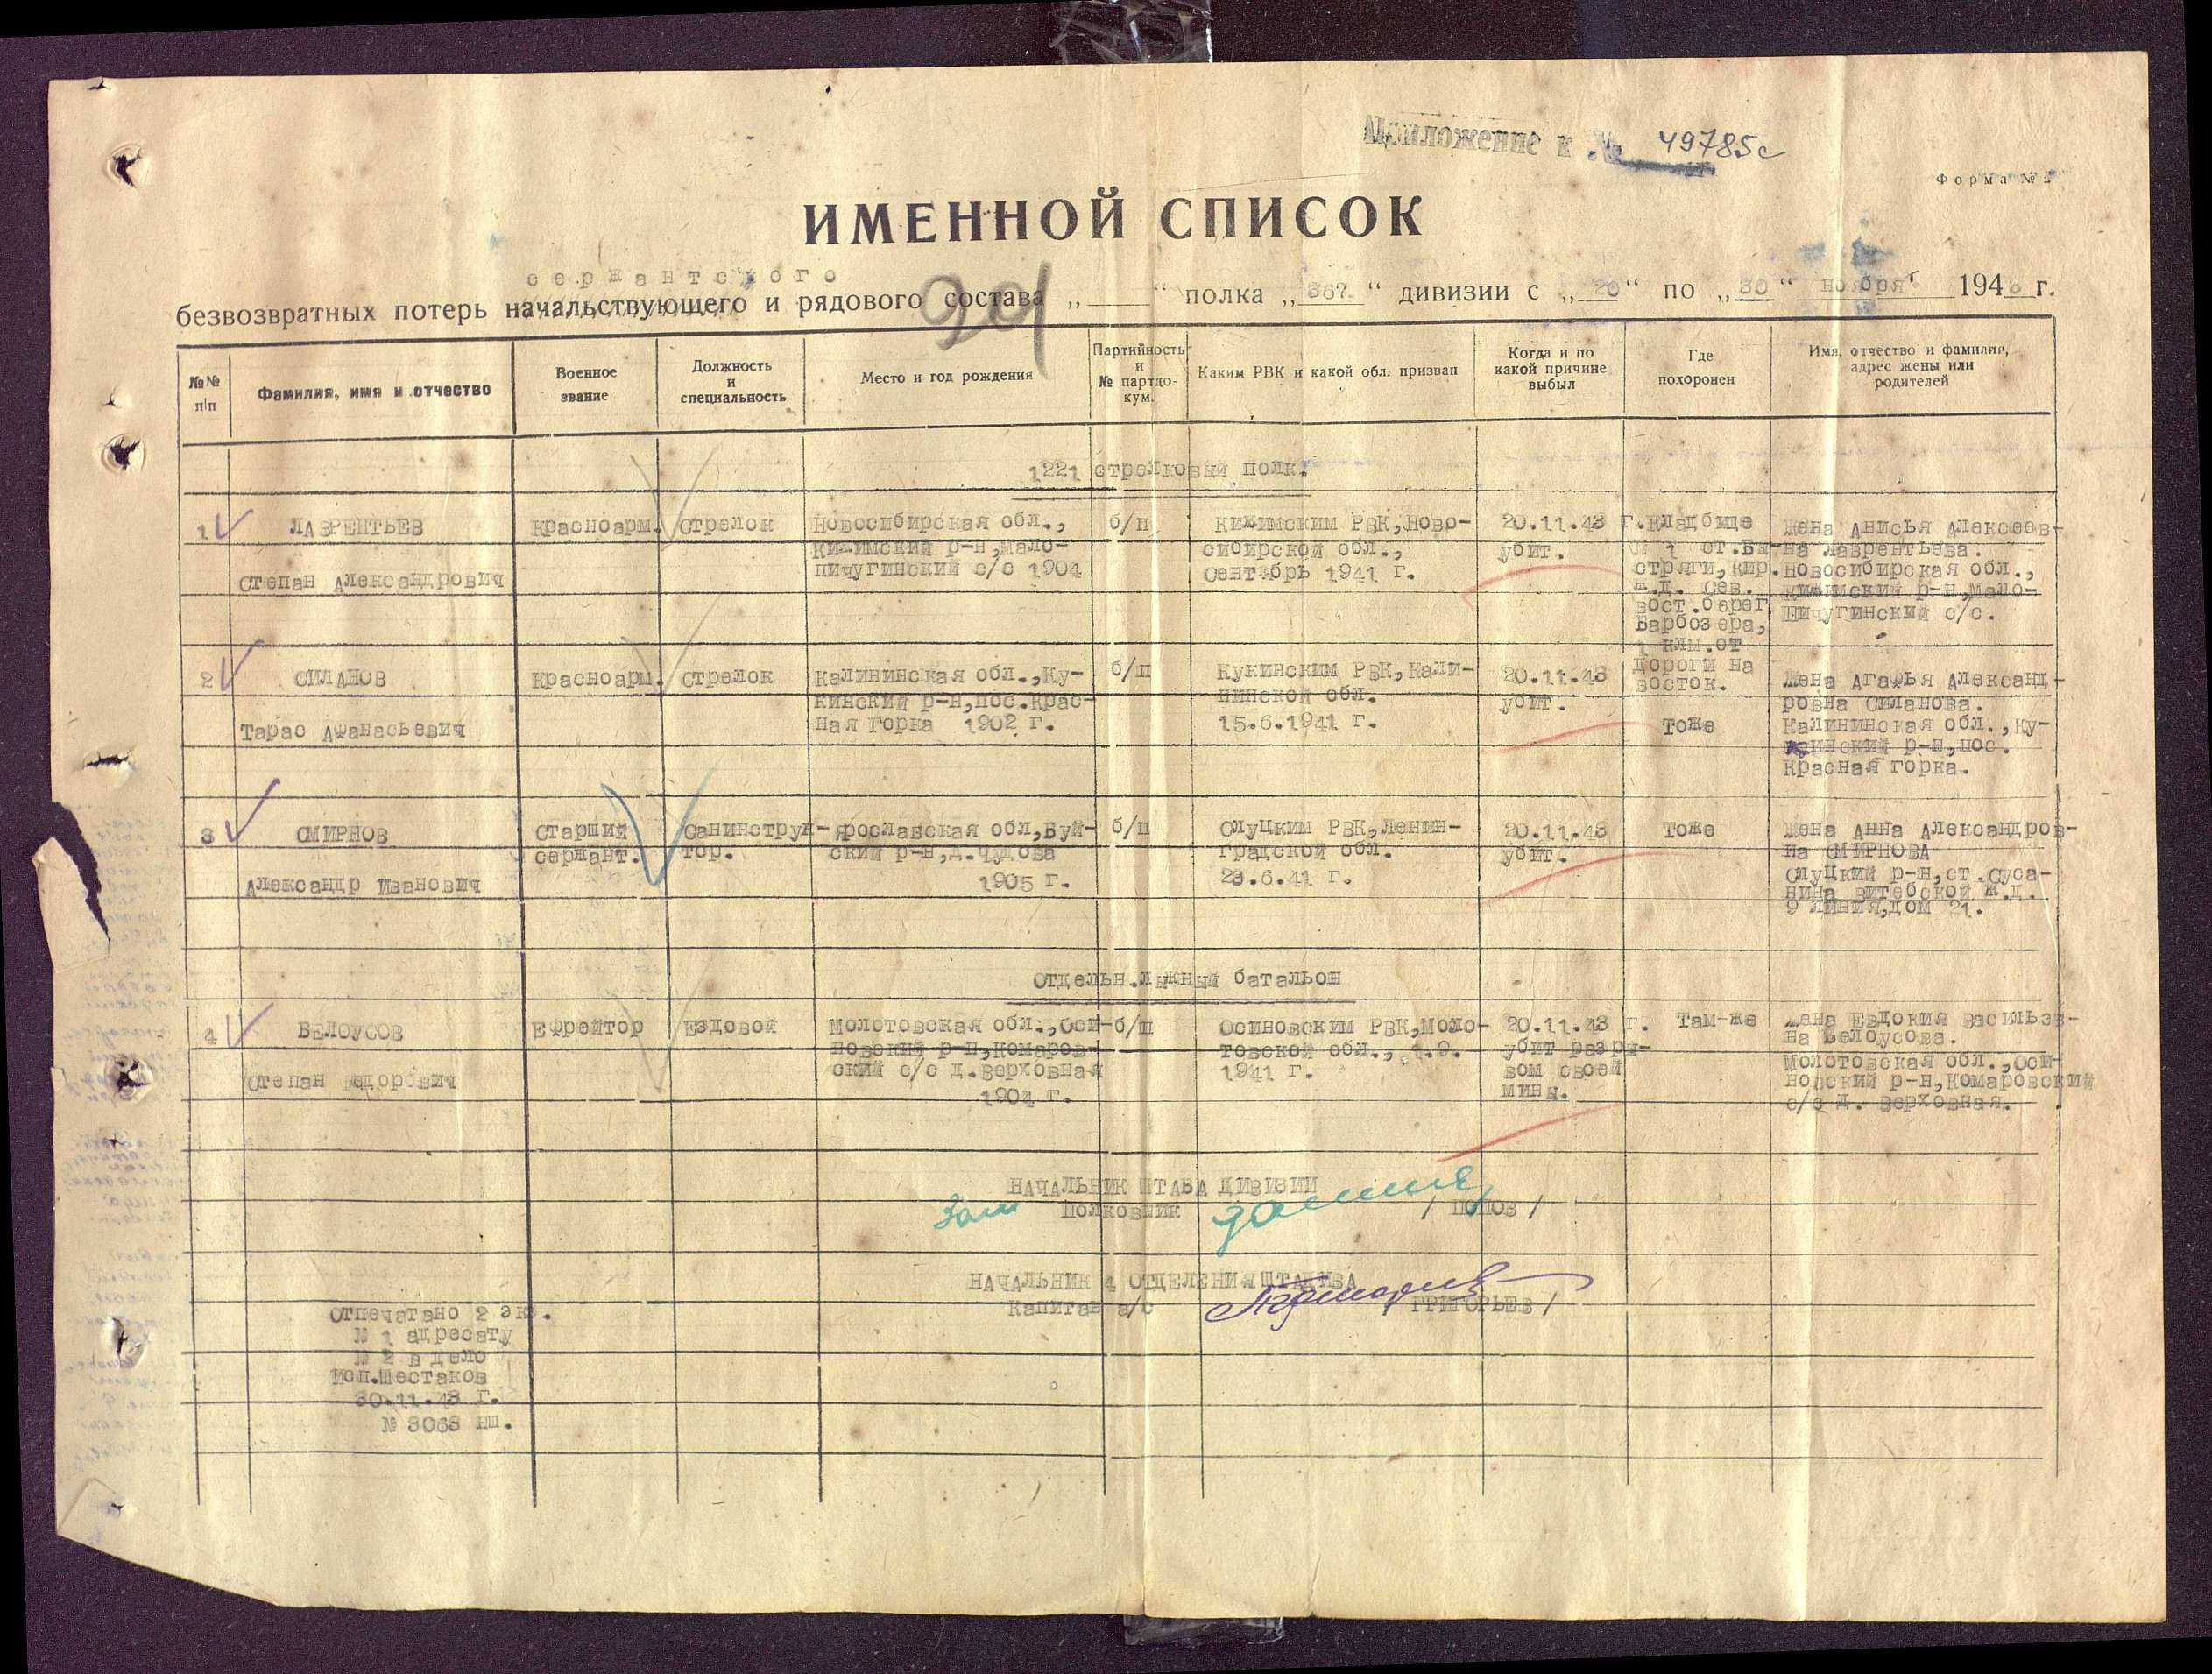 Приложение к № 49785с
Форма № 2
ИМЕННОЙ СПИСОК
сержантского
безвозвратных потерь начальствующего и рядового состава „ “ полка „367.“ дивизии с „20“ по „30“ ноября 1943 г.
№№ п/п
Фамилия, имя и отчество
Военное звание
Должность и специальность
Место и год рождения
Партийность и № партдокум.
Каким РВК и какой обл. призван
Когда и по какой причине выбыл
Где похоронен
Имя, отчество и фамилия, адрес жены или родителей
1221 стрелковый полк.
1
ЛАВРЕНТЬЕВ
Степан Александрович
Красноарм.
Стрелок
Новосибирская обл.,
Кижимский р-н, Мало-
пичугинский с/с 1904
б/п
Кижимским РВК, Ново-
сибирской обл.,
Сентябрь 1941 г.
20.11.43 г.
убит.
Кладбище
№ 1 ст. Бы-
стряги, Кир.
ж.д. Сев.
вост. берег
Варбозера,
1 клм. от
дороги на
восток.
Жена Анисья Алексеев-
на Лаврентьева.
Новосибирская обл.,
Кижимский р-н, Мало-
Пичугинский с/с.
2
СИЛАНОВ
Тарас Афанасьевич
Красноарм.
Стрелок
Калининская обл., Ку-
кинский р-н, пос. Крас-
ная Горка 1902 г.
б/п
Кукинским РВК, Кали-
нинской обл.
15.6.1941 г.
20.11.43
убит.
Тоже
Жена Агафья Александ-
ровна Силанова.
Калининская обл., Ку-
кинский р-н, пос.
Красная горка.
3
СМИРНОВ
Александр Иванович
Старший
сержант.
Санинструк-
тор.
Ярославская обл, Буй-
ский р-н, д. Чудова
1905 г.
б/п
Слуцким РВК, Ленин-
градской обл.
23.6.41 г.
20.11.43
убит.
Тоже
Жена Анна Александров-
на СМИРНОВА
Слуцкий р-н, ст. Суса-
нина Витебской ж.д.
9 линия, дом 21.
Отдельн. лыжный батальон
4
БЕЛОУСОВ
Степан Федорович
Ефрейтор
Ездовой
Молотовская обл., Оси-
новский р-н, Комаров-
ский с/с д. Верховная
1904 г.
б/п
Осиновским РВК, Моло-
товской обл., 1.9.
1941 г.
20.11.43 г.
убит разры-
вом своей
мины.
Там-же
Жена Евдокия Василье-
на Белоусова.
Молотовская обл., Оси-
новский р-н, Комаровский
с/с д. Верховная.
НАЧАЛЬНИК ШТАБА ДИВИЗИИ
Зам Полковник / ПОПОВ /
НАЧАЛЬНИК 4 ОТДЕЛЕНИЯ ШТАДИВА
Капитан а/с ГРИГОРЬЕВ /
Отпечатано 2 экз.
№ 1 адресату
№ 2 в дело
Исп. Шестаков
30.11.43 г.
№ 3063 нш.